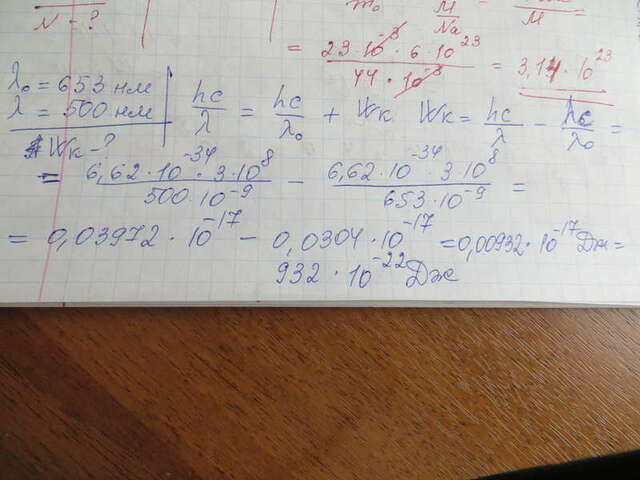 N - ?
m₀ M/Nₐ M
= 23·10⁻³·6·10²³ / 44·10⁻³ = 3,14·10²³
λ₀ = 653 нм
λ = 500 нм
hc/λ = hc/λ₀ + Wк Wк = hc/λ - hc/λ₀ =
Wк - ?
= 6,62·10⁻³⁴·3·10⁸ / 500·10⁻⁹ - 6,62·10⁻³⁴·3·10⁸ / 653·10⁻⁹ =
= 0,03972·10⁻¹⁷ - 0,0304·10⁻¹⁷ = 0,00932·10⁻¹⁷ Дж =
932·10⁻²² Дж